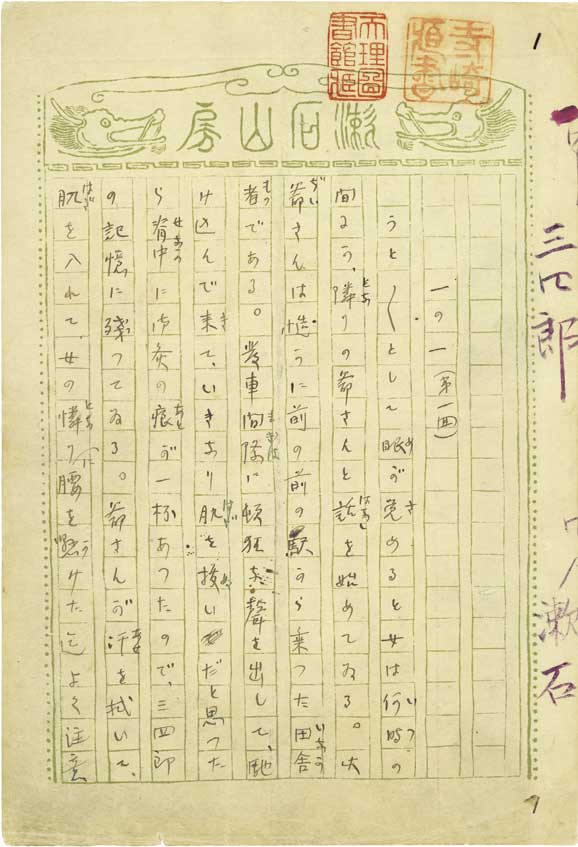 1
三四郎
漱石
寺崎蔵書
天理圖書館蔵
漱石山房
一の一(第一回)
うと〳〵として眠が覚めると女は何時の
間にか、隣りの爺さんと話を始めてゐる。此
爺さんは慥かに前の前の駅から乗つた田舎
者である。發車間際に頓狂な聲を出して、馳
け込んで来て、いきなり肌を抜いだと思つた
ら脊中に御灸の痕が一杯あつたので、三四郎
の記憶に残つてゐる。爺さんが汗を拭いて、
肌を入れて、女の隣りに腰を懸けた迄よく注意